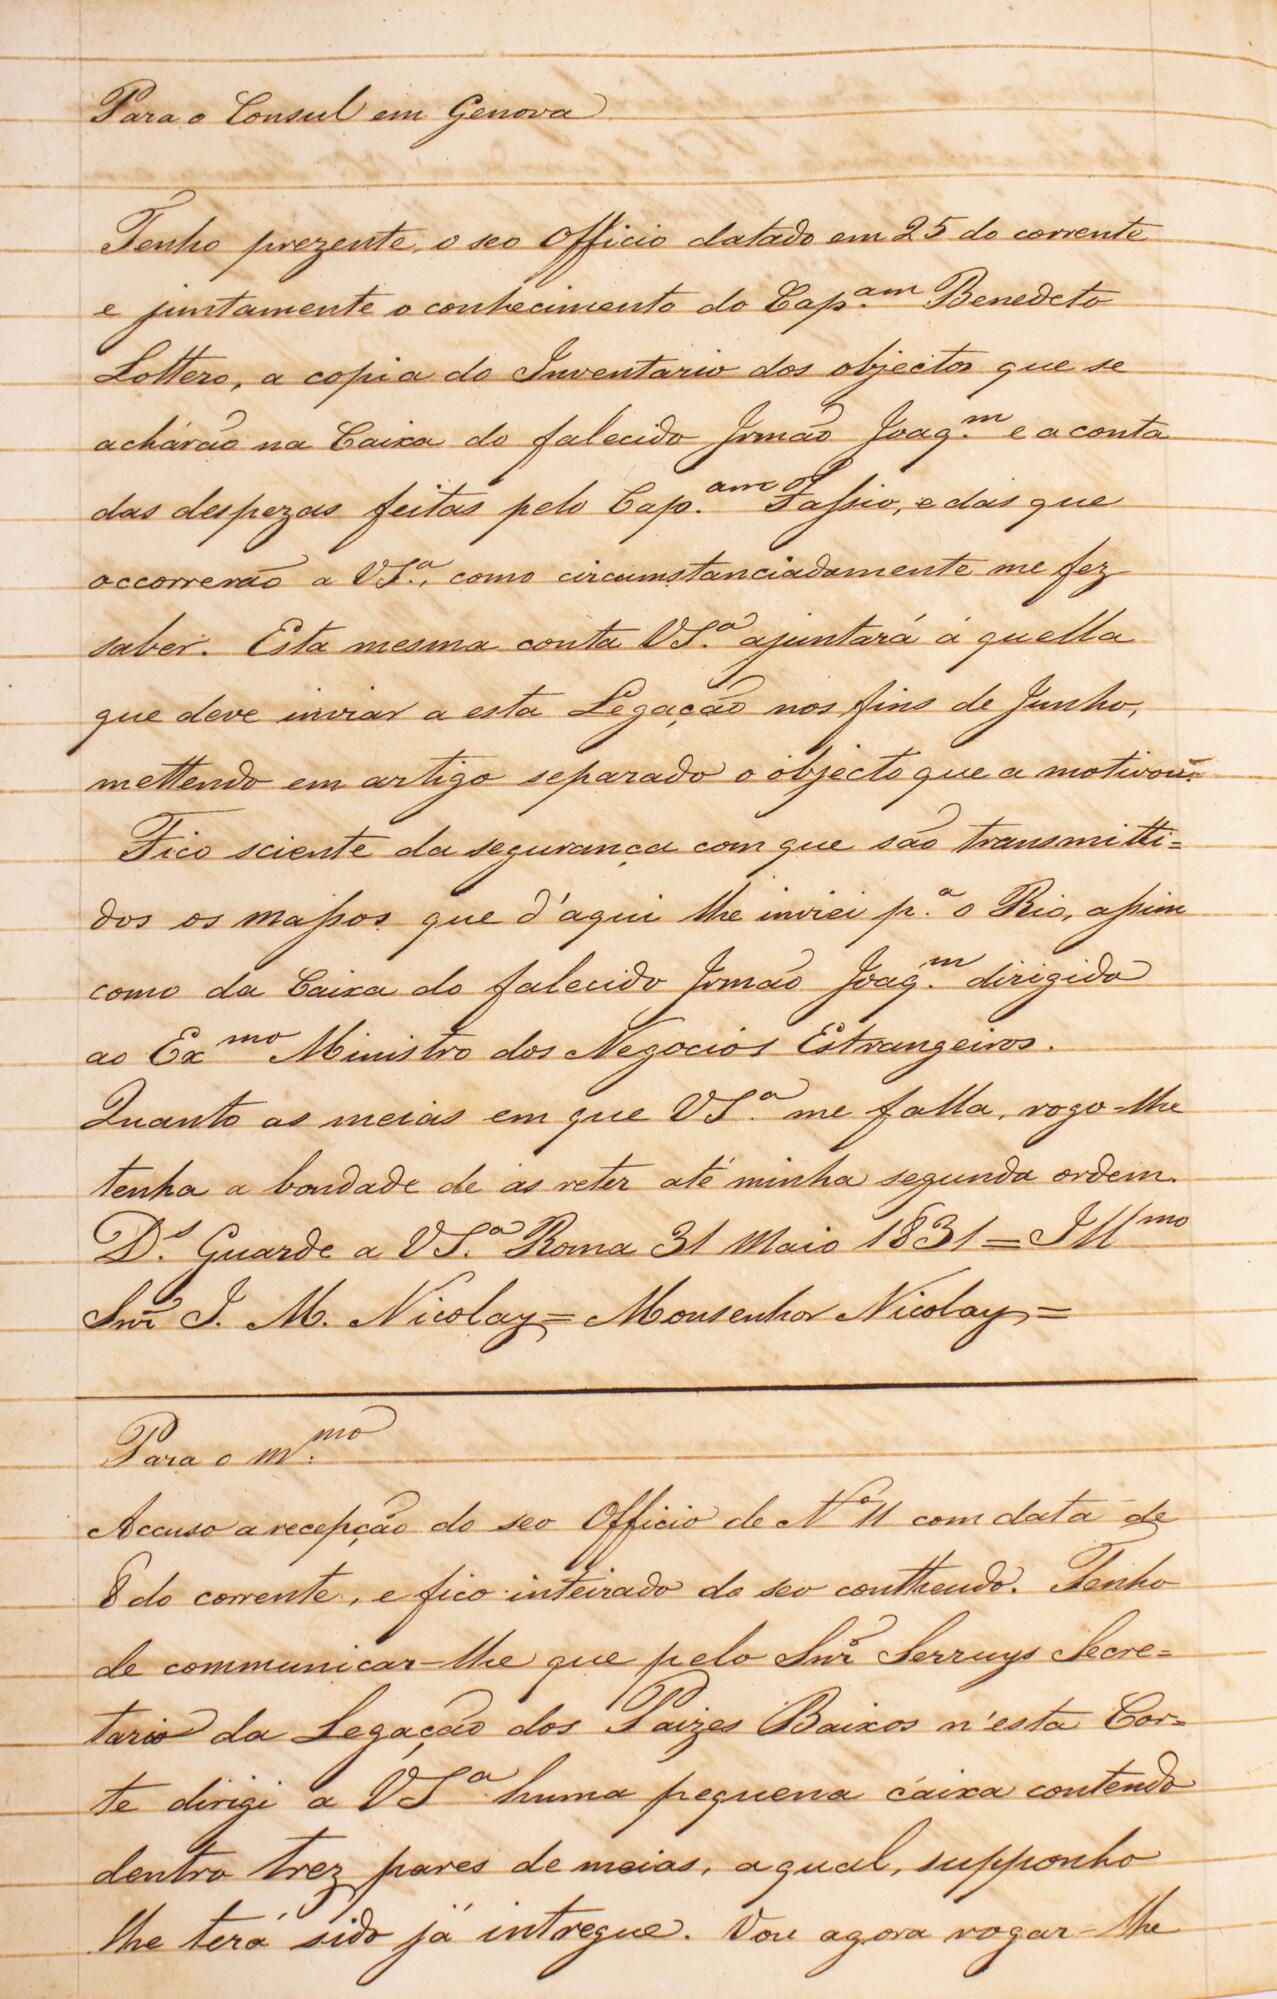 Para o Consul em Genova
Tenho prezente, o seo Officio datado em 25 do corrente
e juntamente o conhecimento do Cap.am Benedeto
Lottero, a copia do Inventario dos objectos que se
achárão na Caixa do falecido Irmão Joaq.m e a conta
das despezas feitas pelo Cap.am Fassio, e das que
occorrerão a VS.a, como circumstanciadamente me fez
saber. Esta mesma conta VS.a ajuntará á quella
que deve inviar a esta Legação nos fins de Junho,
mettendo em artigo separado o objecto que a motivou.
Fico sciente da segurança com que são transmitti=
dos os massos que d'aqui lhe inviei p.a o Rio, assim
como da Caixa do falecido Irmão Joaq.m dirigida
ao Exmo Ministro dos Negocios Estrangeiros.
Quanto as meias em que VS.a me falla, rogo-lhe
tenha a bondade de as reter até minha segunda ordem.
D.s Guarde a VS.a Roma 31 Maio 1831 = Illmo
Snr̃ I. M. Nicolay = Monsenhor Nicolay =
Para o m.mo
Accuso a recepção do seo Officio de No 11 com data de
8 do corrente, e fico inteirado do seo contheudo. Tenho
de communicar-lhe que pelo Snr̃ Serruys Secre=
tario da Legação dos Paizes Baixos n'esta Cor=
te dirigi a VS.a huma pequena caixa contendo
dentro trez pares de meias, a qual, supponho
lhe terá sido já intregue. Vou agora rogar-lhe